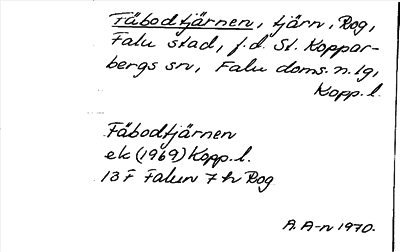 Fäbodtjärnen, tjärn, Rog,
Falu stad, f.d. St. Koppar-
bergs sn, Falu doms. n. tg,
Kopp. l.
Fäbodtjärnen
ek (1969) Kopp. l.
13 F Falun 7 h Rog
A. A-n 1970.